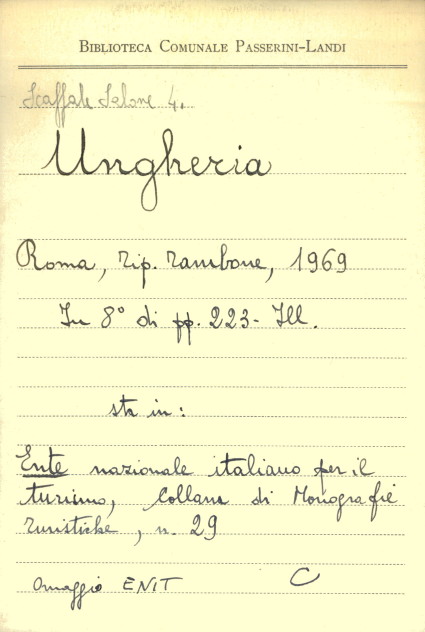 BIBLIOTECA COMUNALE PASSERINI-LANDI
Scaffale Salone 4.
Ungheria
Roma, tip. Rambone, 1969
In 8° di pp. 223 - Ill.
sta in:
Ente nazionale italiano per il
turismo, Collana di Monografie
turistiche, n. 29
omaggio ENIT C